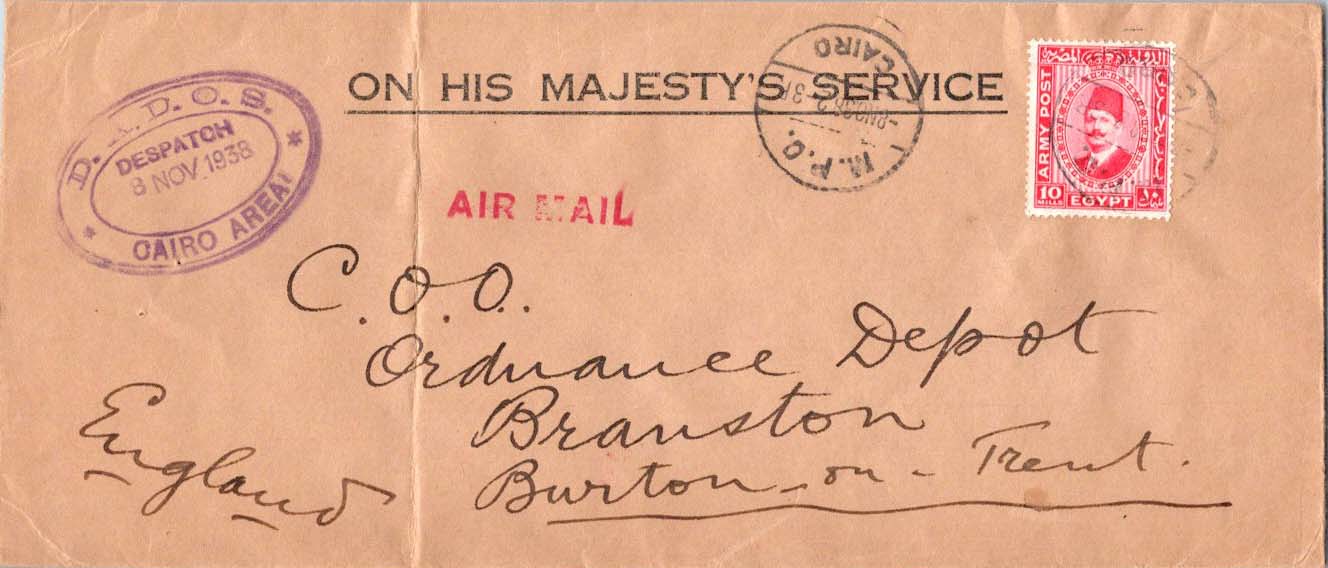 ON HIS MAJESTY'S SERVICE
D. A. D. O. S.
DESPATCH
8 NOV. 1938
* CAIRO AREA *
M.P.O.
CAIRO
ARMY POST
10
MILLS
EGYPT
AIR MAIL
C.O.O.
Ordnance Depot
Branston
Burton-on-Trent.
England